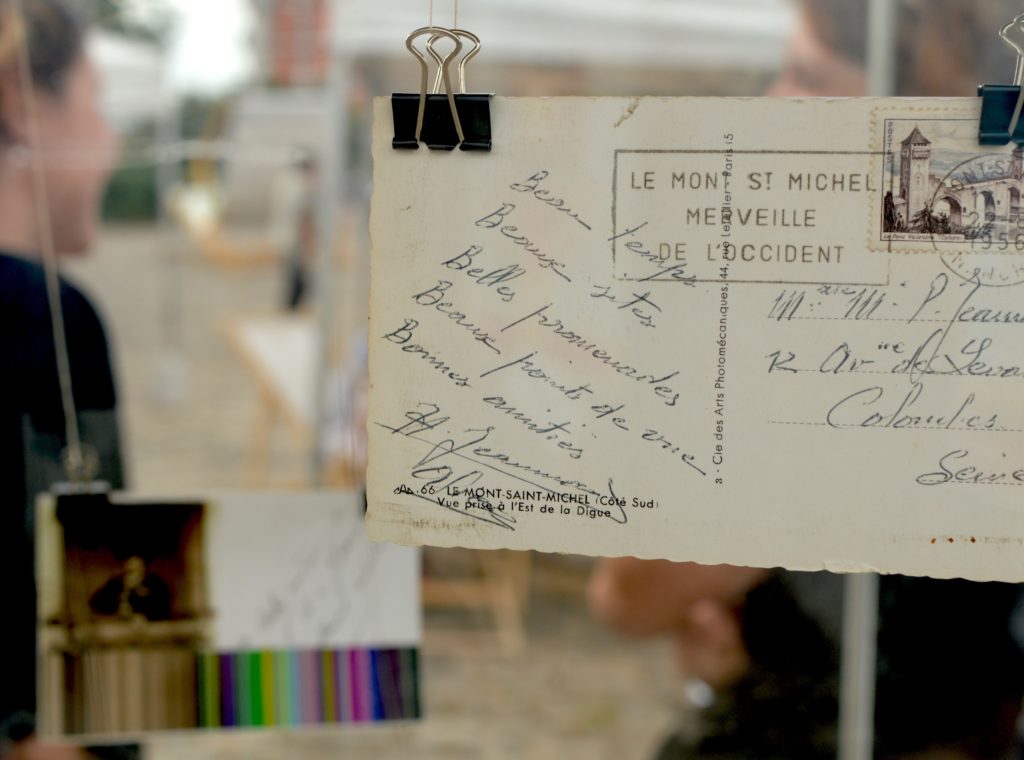 Beau temps
Beaux sites
Belles promenades
Beaux points de vue
Bonnes amitiés
H. Jeanm
66 LE MONT-SAINT-MICHEL (Côté Sud)
Vue prise à l'Est de la Digue
3 - Cie des Arts Photomécaniques, 44, rue Letellier - Paris 15
LE MONT ST MICHEL
MERVEILLE
DE L'OCCIDENT
1956
P. Jeanm
12 Av de
Colombes
Seine